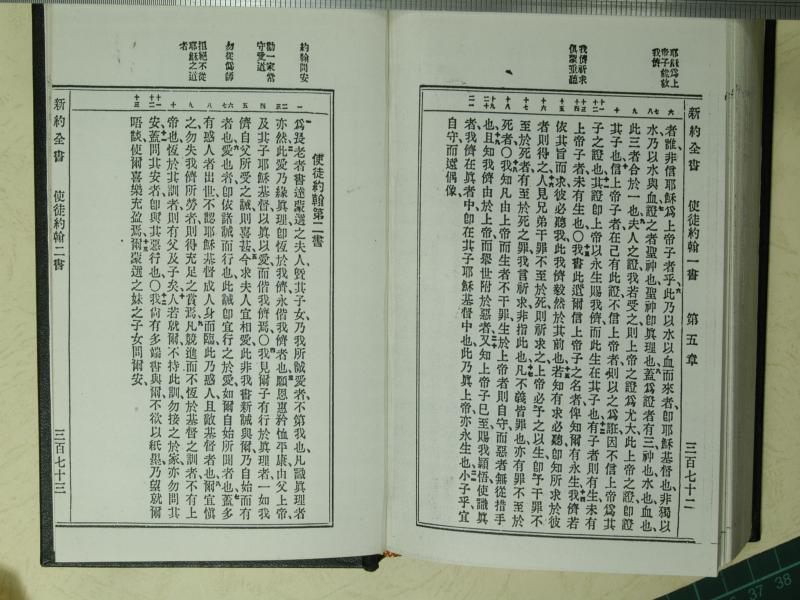 耶穌爲上
帝子能救
我儕
我儕祈求
俱蒙垂聽
新約全書 使徒約翰一書 第五章 三百七十二
者誰非信耶穌爲上帝子者乎、此乃以水以血而來者、卽耶穌基督也、非獨以
水、乃以水與血、證之者聖神也、聖神卽眞理也、蓋爲證者有三、神也、水也、血也、
此三者合於一也、夫人之證、我若受之、則上帝之證爲尤大、此上帝之證、卽證
其子也、信上帝子者、在己有此證、不信上帝者、則以之爲誑、因不信上帝爲其
子之證也、其證卽上帝以永生賜我儕、而此生在其子也、有子者則有生、未有
上帝子者未有生也、○我書此遺爾信上帝子之名者、俾知爾有永生、我儕若
依其旨而求、彼必聽我、此我儕毅然於其前也、若知有求必聽、卽知所求於彼
者則得之、人見兄弟干罪不至於死、則祈求之、上帝必予之以生、卽予干罪不
至於死者、有至於死之罪、我言祈求、非指此也、凡不義皆罪也、亦有罪不至於
死者、○我知凡由上帝而生者不干罪、生於上帝者則自守、而惡者無從措手
也、且知我儕由於上帝、而舉世附於惡者、又知上帝子已至、賜我穎悟、使識眞
者、我儕在眞者中、卽在其子耶穌基督中也、此乃眞上帝、亦永生也、小子乎、宜
自守而遠偶像、
約翰問安
勸一家常
守愛道
勿從僞師
拒絕不從
耶穌之道
者
使徒約翰第二書
爲長老者、書達蒙選之夫人、曁其子女、乃我所誠愛者、不第我也、凡識眞理者
亦然、此愛乃緣眞理、卽恆於我儕、永偕我儕者也、願恩惠矜恤平康、由父上帝
及其子耶穌基督、以眞以愛而偕我儕焉、○我見爾子有行於眞理者、一如我
儕自父所受之誡、則喜甚、今求夫人宜相愛、此非我書新誡與爾、乃自始而有
者也、愛也者、卽依諸誡而行也、此誡卽宜行之於愛、如爾自始所聞者也、蓋多
有惑人者出世、不認耶穌基督成人身而臨、此乃惑人且敵基督者也、爾宜愼
之、勿失我儕所勞者、則得充足之賞焉、凡競進而不恆於基督之訓者、不有上
帝也、恆於其訓者、則有父及子矣、人若就爾、不持此訓、勿接之於家、亦勿問其
安、蓋問其安者、卽與其惡行也、○我尙有多端書與爾、不欲以紙墨、乃望就爾
晤談、使爾喜樂充盈焉、爾蒙選之妹之子女問爾安、
新約全書 使徒約翰二書 三百七十三
37
38